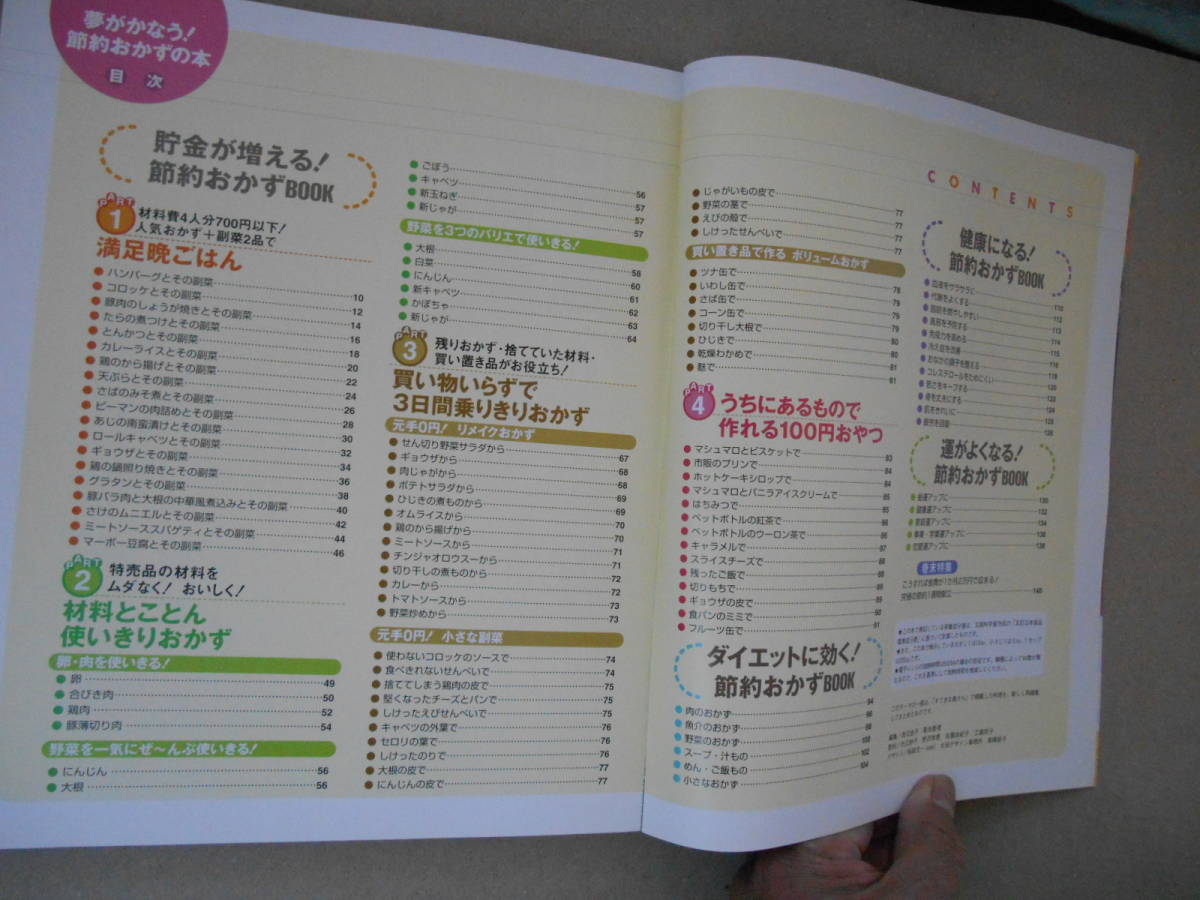 夢がかなう!
節約おかずの本
目 次
貯金が増える!
節約おかずBOOK
PART 1
材料費4人分700円以下!
人気おかず+副菜2品で
満足晩ごはん
ハンバーグとその副菜 10
コロッケとその副菜 12
豚肉のしょうが焼きとその副菜 14
たらの煮つけとその副菜 16
とんかつとその副菜 18
カレーライスとその副菜 20
鶏のから揚げとその副菜 22
天ぷらとその副菜 24
さばのみそ煮とその副菜 26
ピーマンの肉詰めとその副菜 28
あじの南蛮漬けとその副菜 30
ロールキャベツとその副菜 32
ギョウザとその副菜 34
鶏の鍋照り焼きとその副菜 36
グラタンとその副菜 38
豚バラ肉と大根の中華風煮込みとその副菜 40
さけのムニエルとその副菜 42
ミートソーススパゲティとその副菜 44
マーボー豆腐とその副菜 46
PART 2
特売品の材料を
ムダなく! おいしく!
材料とことん
使いきりおかず
卵・肉を使いきる!
卵 49
合びき肉 50
鶏肉 52
豚薄切り肉 54
野菜を一気にぜ〜んぶ使いきる!
にんじん 56
大根 56
ごぼう 56
キャベツ 57
新玉ねぎ 57
新じゃが 57
野菜を3つのバリエで使いきる!
大根 58
白菜 60
にんじん 61
新キャベツ 62
かぼちゃ 63
新じゃが 64
PART 3
残りおかず・捨てていた材料・
買い置き品がお役立ち!
買い物いらずで
3日間乗りきりおかず
元手0円! リメイクおかず
せん切り野菜サラダから 67
ギョウザから 68
肉じゃがから 68
ポテトサラダから 69
ひじきの煮ものから 69
オムライスから 70
鶏のから揚げから 70
ミートソースから 71
チンジャオロウスーから 71
切り干しの煮ものから 72
カレーから 72
トマトソースから 73
野菜炒めから 73
元手0円! 小さな副菜
使わないコロッケのソースで 74
食べきれないせんべいで 74
捨ててしまう鶏肉の皮で 75
堅くなったチーズとパンで 75
しけったえびせんべいで 75
キャベツの外葉で 76
セロリの葉で 76
しけったのりで 76
大根の皮で 77
にんじんの皮で 77
じゃがいもの皮で 77
野菜の茎で 77
えびの殻で 77
しけったせんべいで 77
買い置き品で作る ボリュームおかず
ツナ缶で 78
いわし缶で 79
さば缶で 79
コーン缶で 79
切り干し大根で 80
ひじきで 80
乾燥わかめで 81
麩で 81
PART 4
うちにあるもので
作れる100円おやつ
マシュマロとビスケットで 83
市販のプリンで 84
ホットケーキシロップで 84
マシュマロとバニラアイスクリームで 85
はちみつで 85
ペットボトルの紅茶で 86
ペットボトルのウーロン茶で 86
キャラメルで
スライスチーズで
残ったご飯で
切りもちで
ギョウザの皮で
食パンのミミで
フルーツ缶で
ダイエットに効く!
節約おかずBOOK
肉のおかず 94
魚介のおかず
野菜のおかず
スープ・汁もの 102
めん・ご飯もの 104
小さなおかず
CONTENTS
健康になる!
節約おかずBOOK
血液をサラサラに 110
代謝をよくする 112
脂肪を燃やしやすい 113
高血を予防する 114
免疫力を高める 115
冷え症を改善 116
おなかの調子を整える 118
コレステロールをためにくい 120
若さをキープする 122
骨を丈夫にする
肌をきれいに
疲労を回復
運がよくなる!
節約おかずBOOK
金運アップに 130
健康運アップに 132
家庭運アップに 134
事業・学業運アップに 136
恋愛運アップに 138
巻末特集
こうすれば食費が1か月2万円で収まる!
究極の節約1週間献立 140